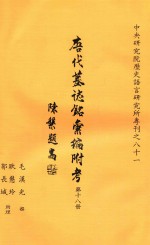 中央研究院歷史語言研究所專刊之八十一
唐代墓誌銘彙編附考
第十八册
陳槃題耑
毛漢光 撰
耿慧玲
郭長城 助理